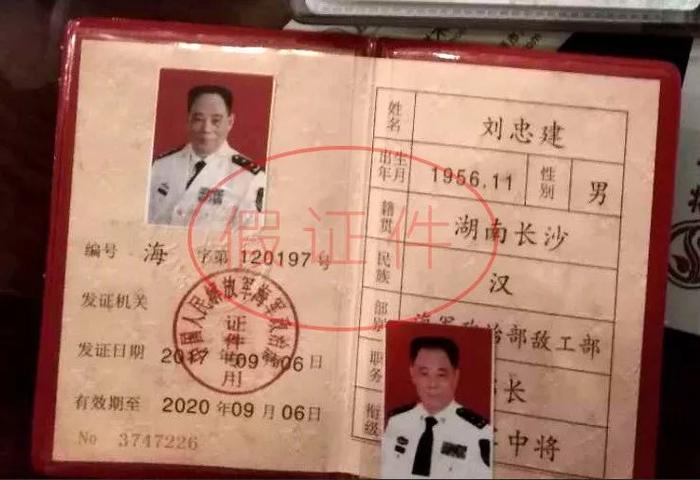 编号 海 字第 120197 号
发证机关
中国人民解放军海军政治部
证件专用
发证日期 2017 年 09 月 06 日
有效期至 2020 年 09 月 06 日
No 3747226
假证件
姓名 刘忠建
出生年月 1956.11 性别 男
籍贯 湖南长沙
民族 汉
部别 海军政治部敌工部
职务 长
衔级 中将